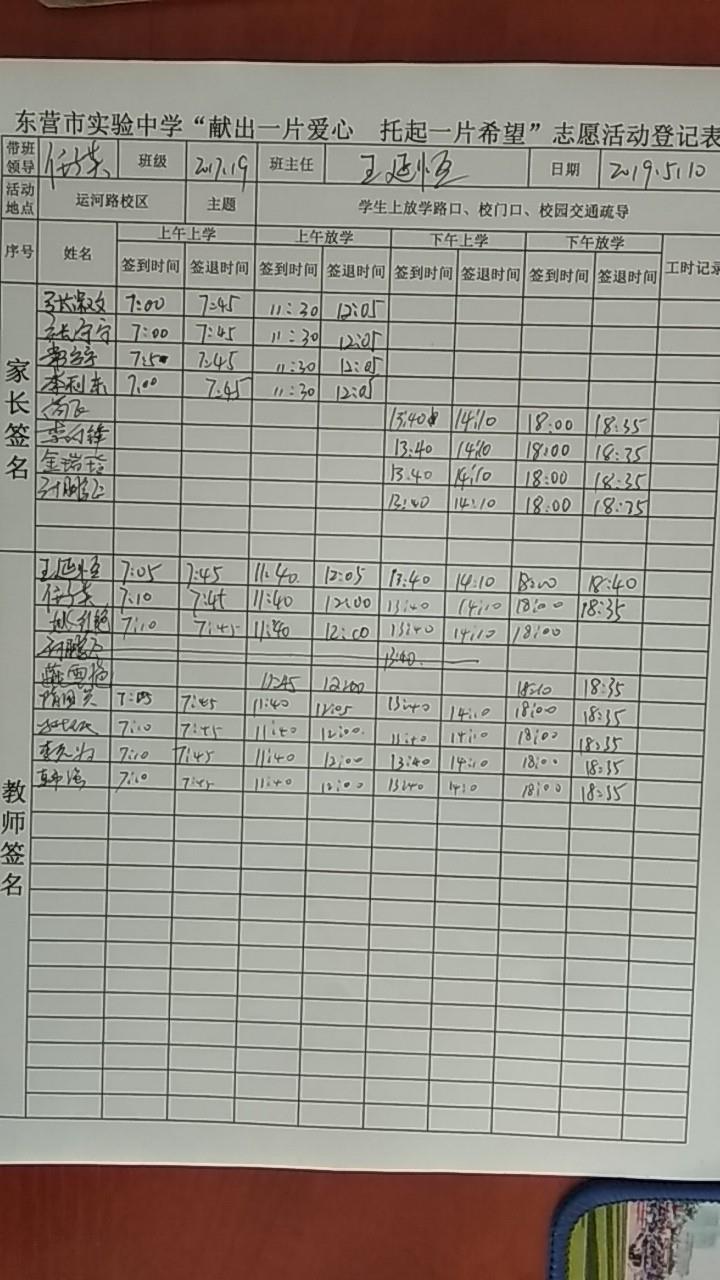 东营市实验中学“献出一片爱心 托起一片希望”志愿活动登记表
带班领导 班级 2017.19 班主任 王延恒 日期 2019.5.10
活动地点 运河路校区 主题 学生上放学路口、校门口、校园交通疏导
序号 姓名 上午上学 上午放学 下午上学 下午放学 工时记录
签到时间 签退时间 签到时间 签退时间 签到时间 签退时间 签到时间 签退时间
家长签名
7:00 7:45 11:30 12:05
7:00 7:45 11:30 12:05
7:45 11:30 12:05
李利东 7:00 7:45 11:30 12:05
13:40 14:10 18:00 18:35
13:40 14:10 18:00 18:35
13:40 14:10 18:00 18:35
13:40 14:10 18:00 18:35
教师签名
王延恒 7:05 7:45 11:40 12:05 13:40 14:10 18:00 18:40
7:10 7:45 11:40 12:00 13:40 14:10 18:00 18:35
7:10 7:45 11:40 12:00 13:40 14:10 18:00
13:40
11:45 12:00 18:10 18:35
7:05 7:45 11:40 12:05 13:40 14:10 18:00 18:35
7:10 7:45 11:40 12:00 14:10 18:00 18:35
7:10 7:45 11:40 12:00 13:40 14:10 18:00 18:35
7:10 7:45 11:40 12:00 13:40 18:00 18:35